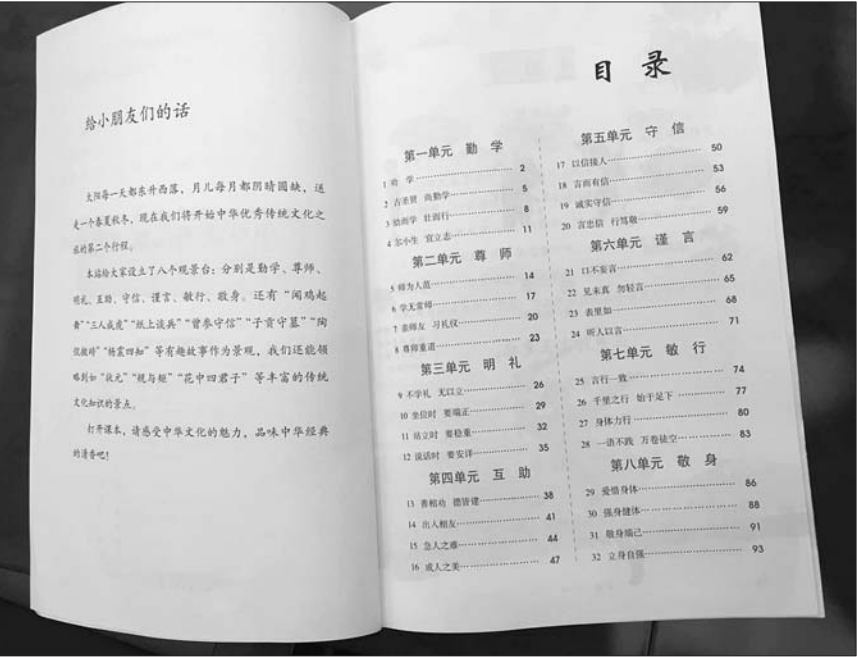 给小朋友们的话
太阳每一天都东升西落，月儿每月都阴晴圆缺，送
走一个春夏秋冬，现在我们将开始中华优秀传统文化之
旅的第二个行程。
本站给大家设立了八个观景台：分别是勤学、尊师、
明礼、互助、守信、谨言、敏行、敬身。还有“闻鸡起
舞”“三人成虎”“纸上谈兵”“曾参守信”“子贡守墓”“陶
侃”“杨震四知”等有趣故事作为景观，我们还能领
略到如“状元”“规与矩”“花中四君子”等丰富的传统
文化知识的景点。
打开课本，请感受中华文化的魅力，品味中华经典
的清香吧！
目录
第一单元 勤 学
1 劝 学 2
2 古圣贤 尚勤学 5
3 幼而学 壮而行 8
4 尔小生 宜立志 11
第二单元 尊 师
5 师为人范 14
6 学无常师 17
7 亲师友 习礼仪 20
8 尊师重道 23
第三单元 明 礼
9 不学礼 无以立 26
10 坐位时 要端正 29
11 站立时 要稳重 32
12 说话时 要安详 35
第四单元 互 助
13 善相劝 德皆建 38
14 出入相友 41
15 急人之难 44
16 成人之美 47
第五单元 守 信
17 以信接人 50
18 言而有信 53
19 诚实守信 56
20 言忠信 行笃敬 59
第六单元 谨 言
21 口不妄言 62
22 见未真 勿轻言 65
23 表里如一 68
24 听人以言 71
第七单元 敏 行
25 言行一致 74
26 千里之行 始于足下 77
27 身体力行 80
28 一语不践 万卷徒空 83
第八单元 敬 身
29 爱惜身体 86
30 强身健体 88
31 敬身端己 91
32 立身自强 93